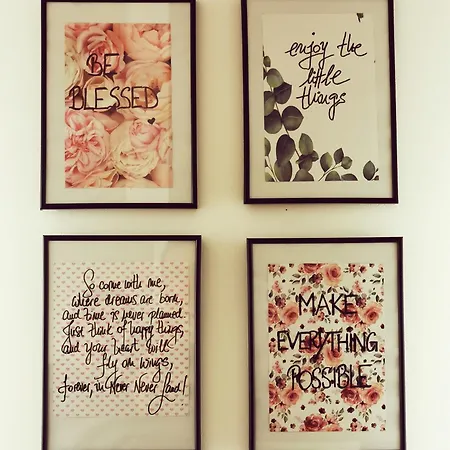 BE
BLESSED
enjoy the
little
things
So come with me,
where dreams are born,
and time is never planned.
Just think of happy things,
and your heart will
fly on wings,
forever, in Never Never Land!
MAKE
EVERYTHING
POSSIBLE